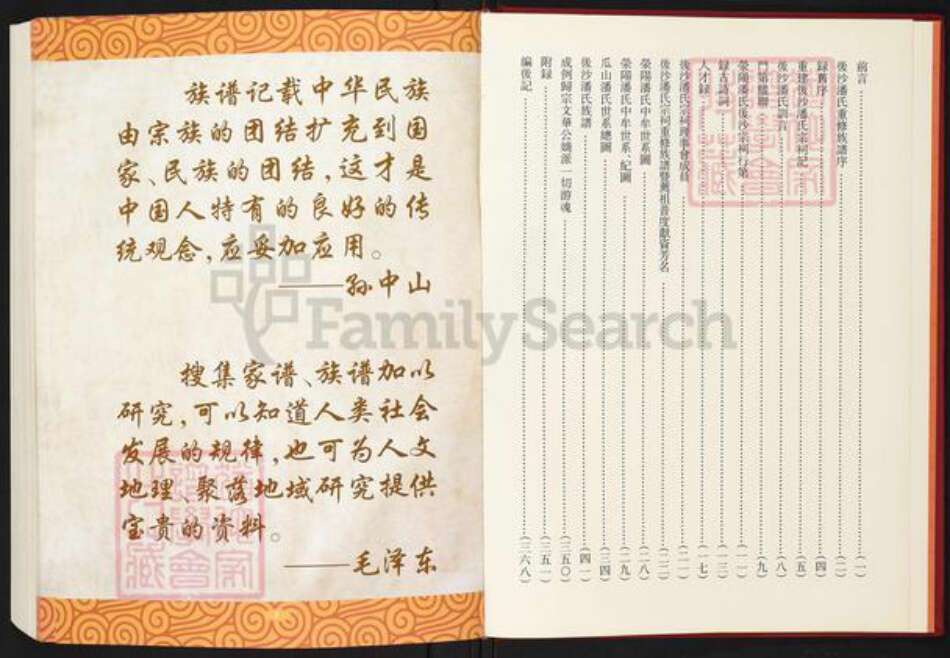 族谱记载中华民族
由宗族的团结扩充到国
家、民族的团结，这才是
中国人特有的良好的传
统观念，应妥加应用。
——孙中山
搜集家谱、族谱加以
研究，可以知道人类社会
发展的规律，也可为人文
地理、聚落地域研究提供
宝贵的资料。
——毛泽东
FamilySearch
前言（一）
後沙潘氏重修族譜序（二）
録舊序（四）
重建後沙潘氏宗祠記（五）
後沙潘氏訓言（八）
門第楹聯（九）
滎陽潘氏後沙宗祠行第（一一）
録古詩詞（一三）
人才録（一七）
後沙潘氏宗祠理事會成員（二一）
後沙潘氏宗祠重修族譜暨薦祖普度獻資芳名（二二）
滎陽潘氏中牟世系圖（二八）
滎陽潘氏中牟世系紀圖（二九）
瓜山潘氏世系總圖（三四）
後沙潘氏族譜（四一）
成例歸宗文華公嬌派一切游魂（三五〇）
附録（三五一）
編後記（三六八）